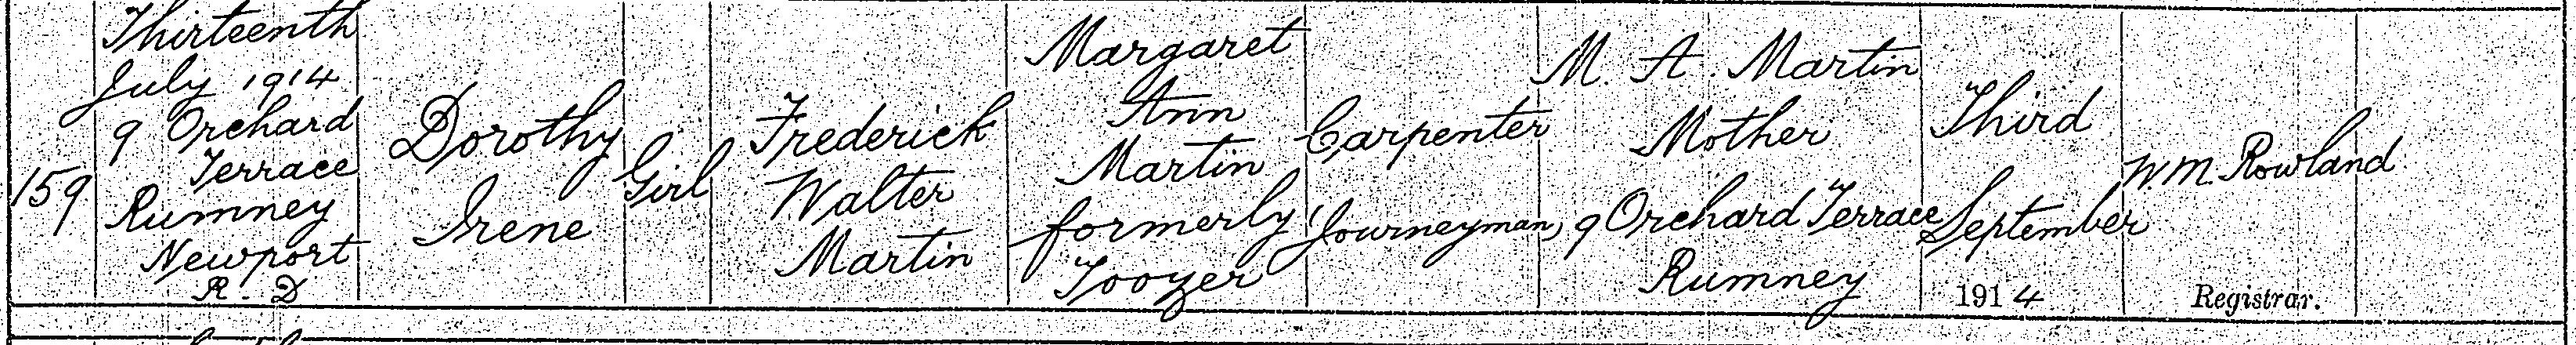 159
Thirteenth
July 1914
9 Orchard
Terrace
Rumney
Newport
R. D
Dorothy
Irene
Girl
Frederick
Walter
Martin
Margaret
Ann
Martin
formerly
Toozer
Carpenter
(Journeyman)
M. A. Martin
Mother
9 Orchard Terrace
Rumney
Third
September
1914
W. M. Rowland
Registrar.